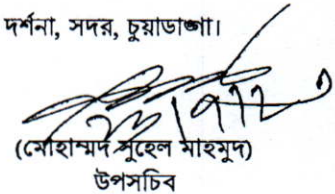 দর্শনা, সদর, চুয়াডাঙ্গা।
(মোহাম্মদ সুহেল মাহমুদ)
উপসচিব